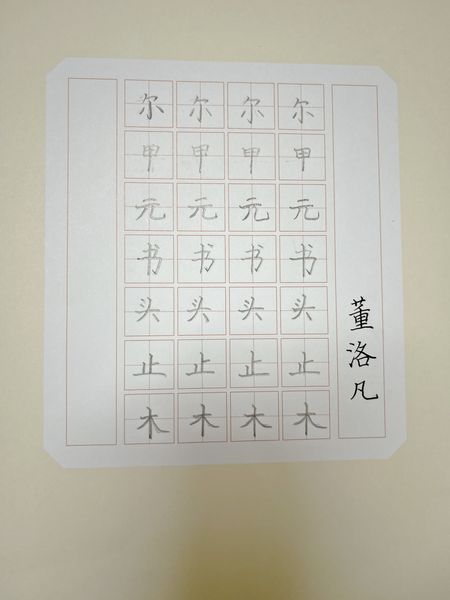 尔尔尔尔
甲甲甲甲
元元元元
书书书书
头头头头
止止止止
木木木木
董洛凡